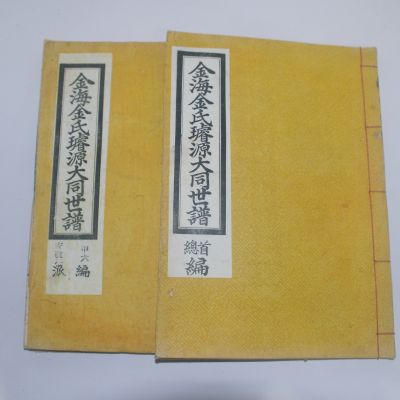 金海金氏璿源大同世譜
首
總
編
金海金氏璿源大同世譜
編
派